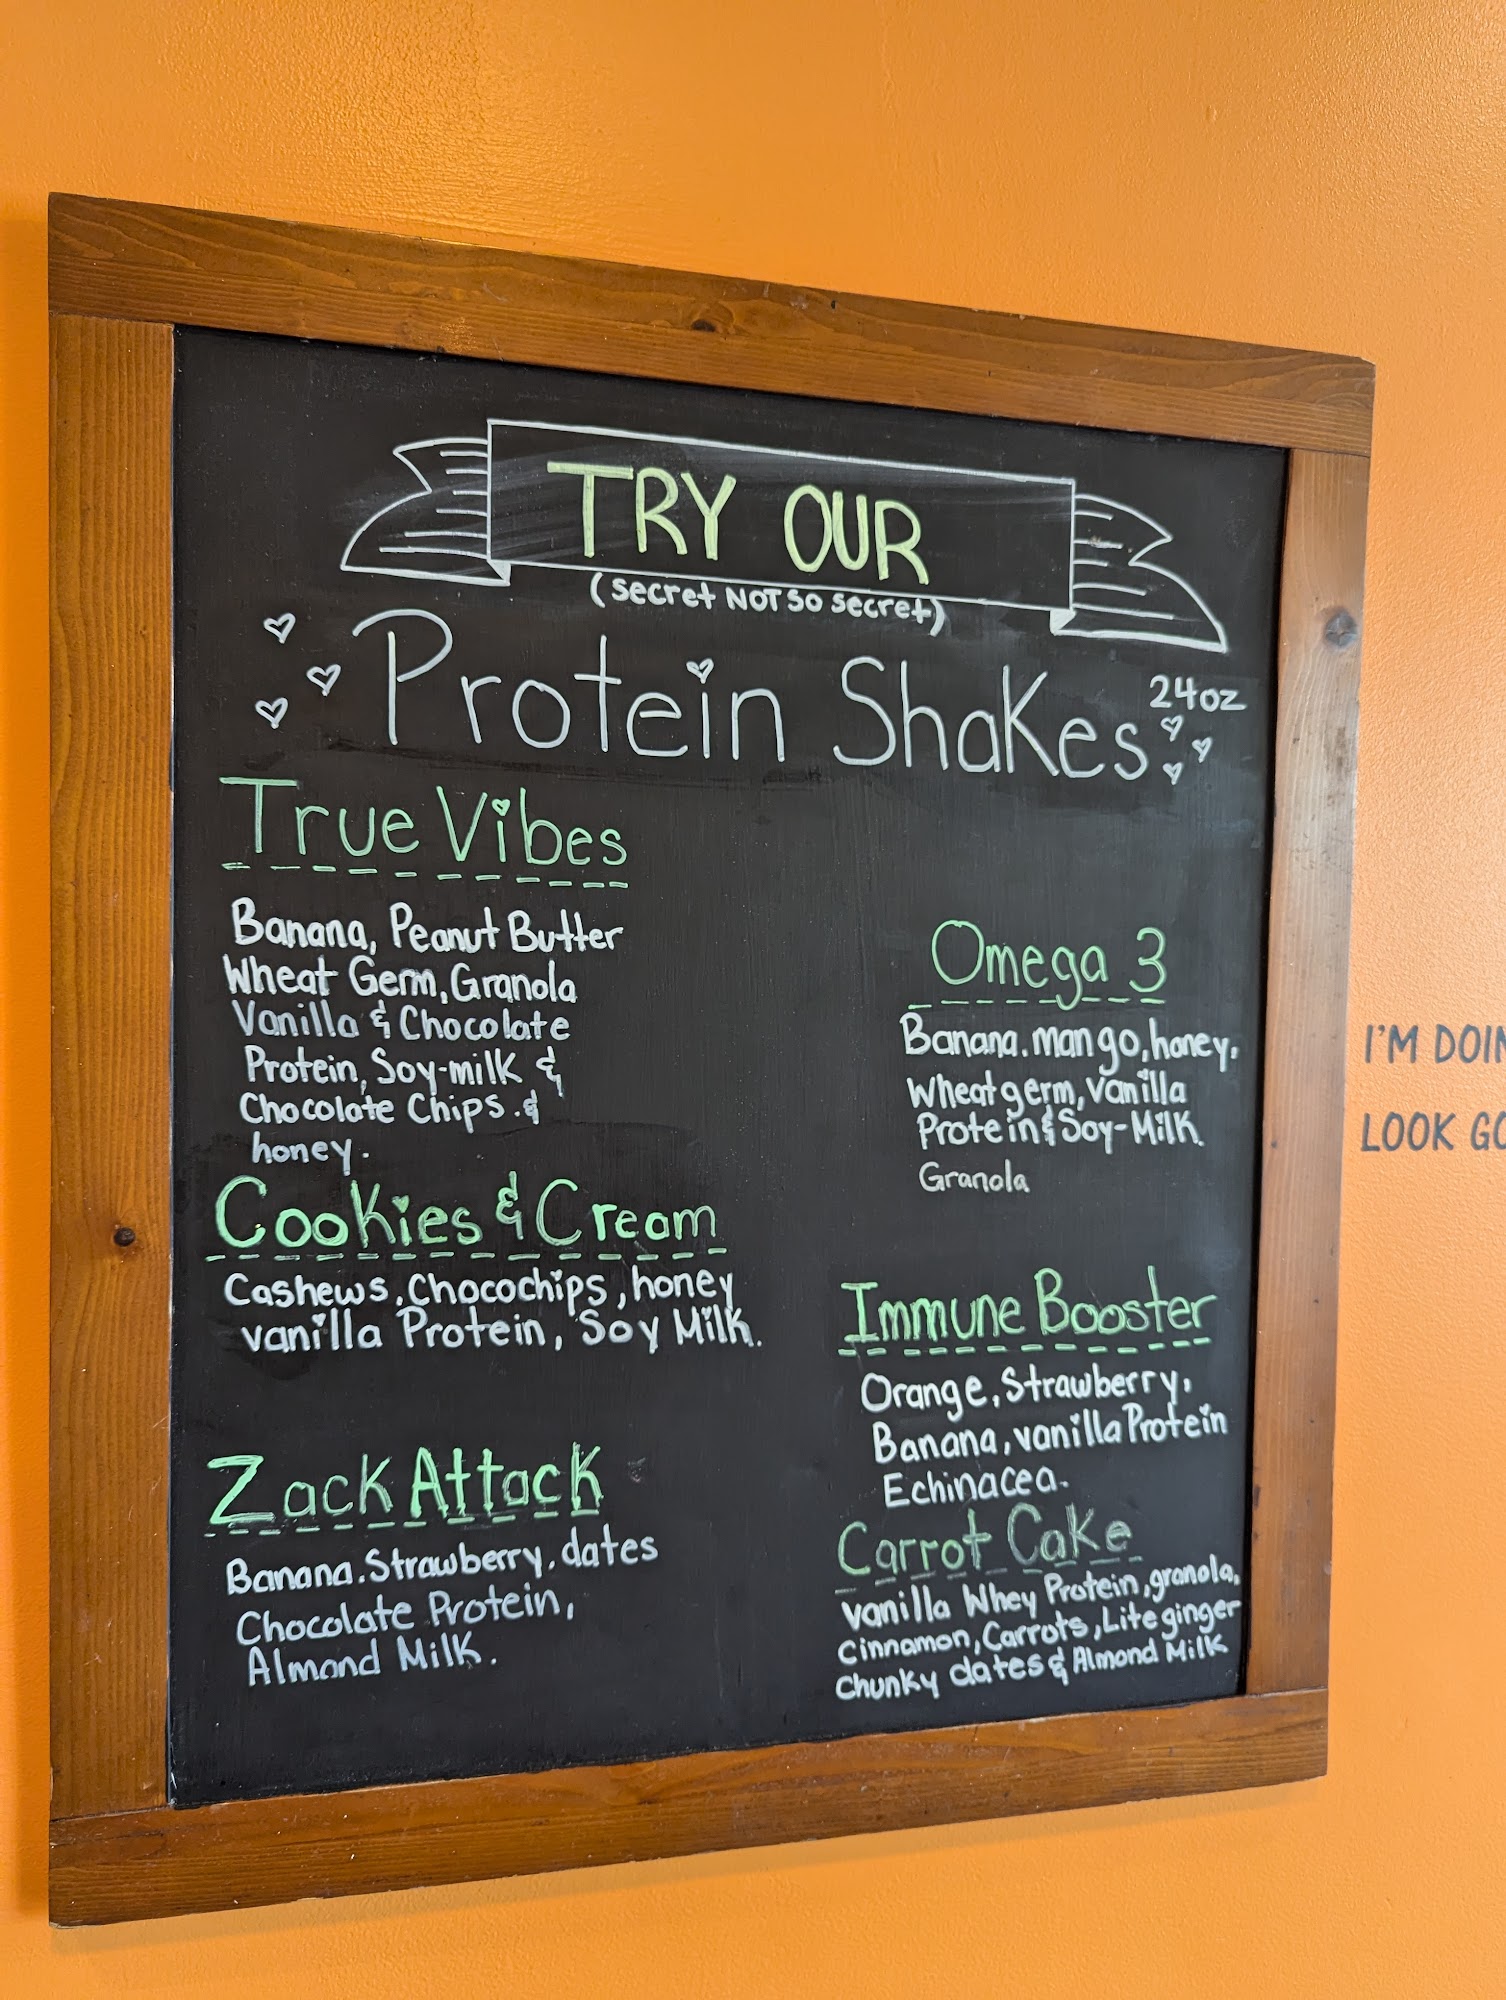 TRY OUR
(secret NOT SO secret)
Protein Shakes
24oz
True Vibes
Banana, Peanut Butter
Wheat Germ, Granola
Vanilla & Chocolate
Protein, Soy-milk &
Chocolate Chips. &
honey.
Cookies & Cream
Cashews, Chocochips, honey
vanilla Protein, Soy Milk.
Zack Attack
Banana. Strawberry, dates
Chocolate Protein,
Almond Milk.
Omega 3
Banana. mango, honey.
Wheat germ, vanilla
Protein & Soy-Milk
Granola
Immune Booster
Orange, Strawberry,
Banana, vanilla Protein
Echinacea.
Carrot Cake
vanilla Whey Protein, granola,
cinnamon, Carrots, Lite ginger
chunky dates & Almond Milk
I'M DOIN
LOOK GO